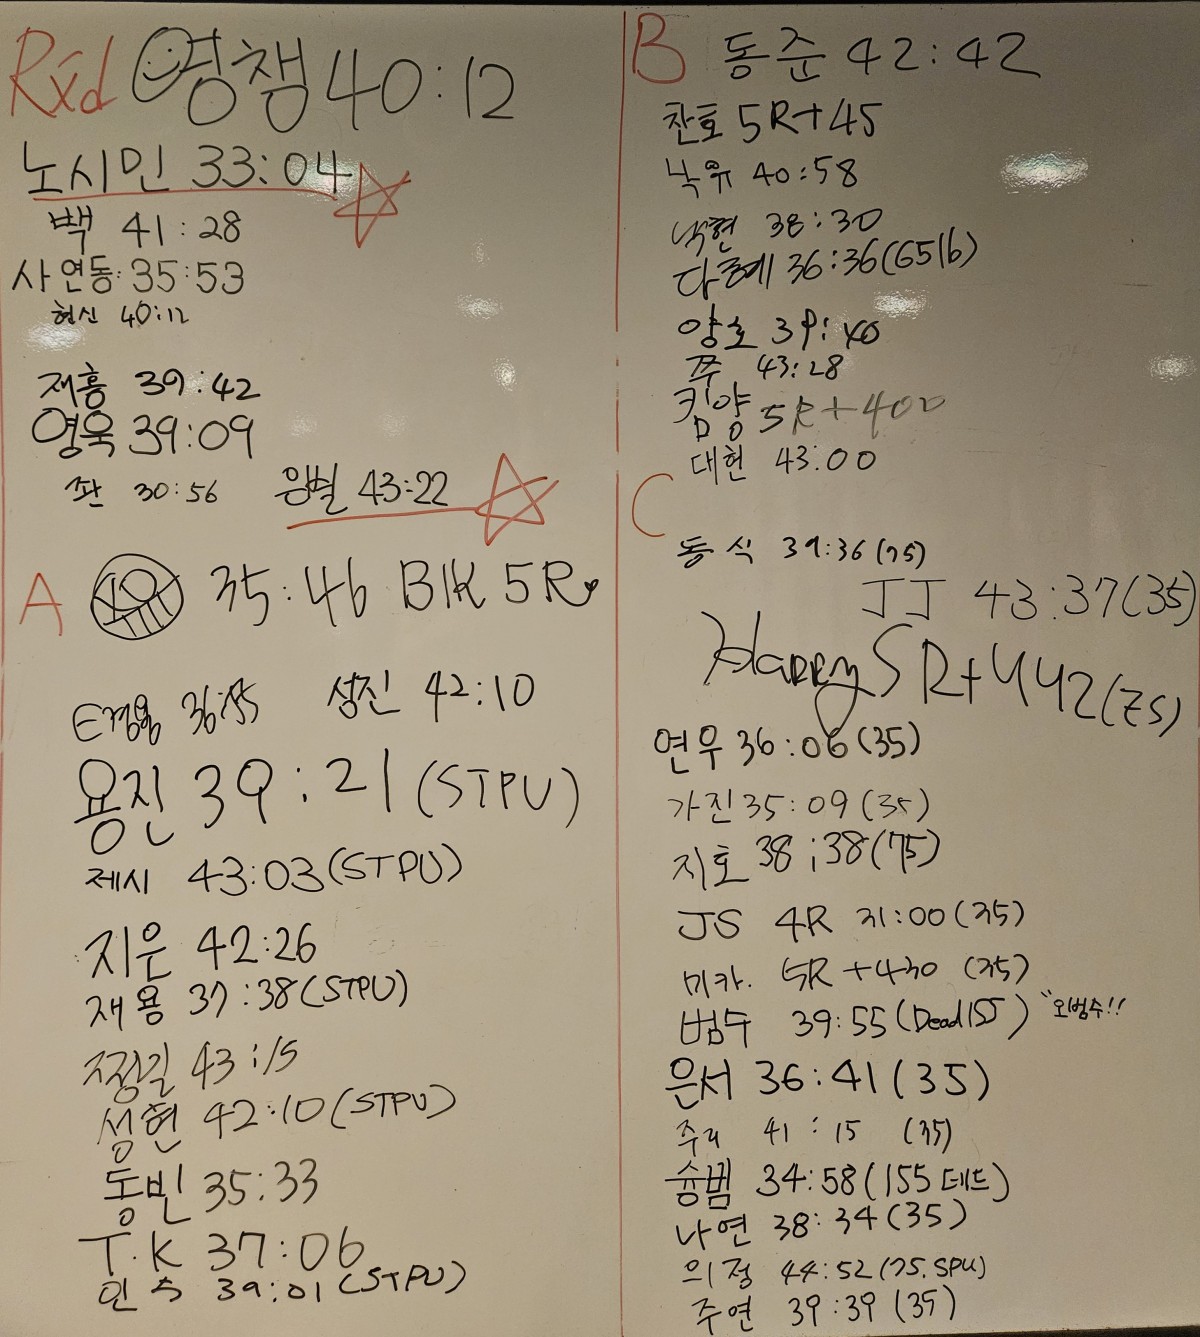 Rxd 영챔 40:12
노시민 33:04
백 41:28
사연동: 35:53
현신 40:12
재홍 39:42
영욱 39:09
좌 30:56
왕별 43:22
A
35:46 BIK 5R
E경용 36:55
성진 42:10
용진 39:21 (STPU)
제시 43:03 (STPU)
지은 42:26
재용 37:38 (STPU)
쩡길 43:15
성현 42:10 (STPU)
동빈 35:33
T.K 37:06
인수 39:01 (STPU)
B 동준 42:42
찬호 5R+45
낙유 40:58
낙현 38:30
다혜 36:36 (65lb)
양호 39:40
쭈 43:28
킴양 5R+400
대현 43:00
C
동식 39:36 (75)
JJ 43:37 (35)
Harry 5R+442 (75)
연우 36:06 (35)
가진 35:09 (35)
지호 38;38 (75)
JS 4R 31:00 (35)
미카. 5R+430 (35)
범수 39:55 (Dead 155) "오범수!!
은서 36:41 (35)
주리 41:15 (35)
슝범 34:58 (155 데드)
나연 38:34 (35)
의정 44:52 (75. SPU)
주연 39:39 (35)